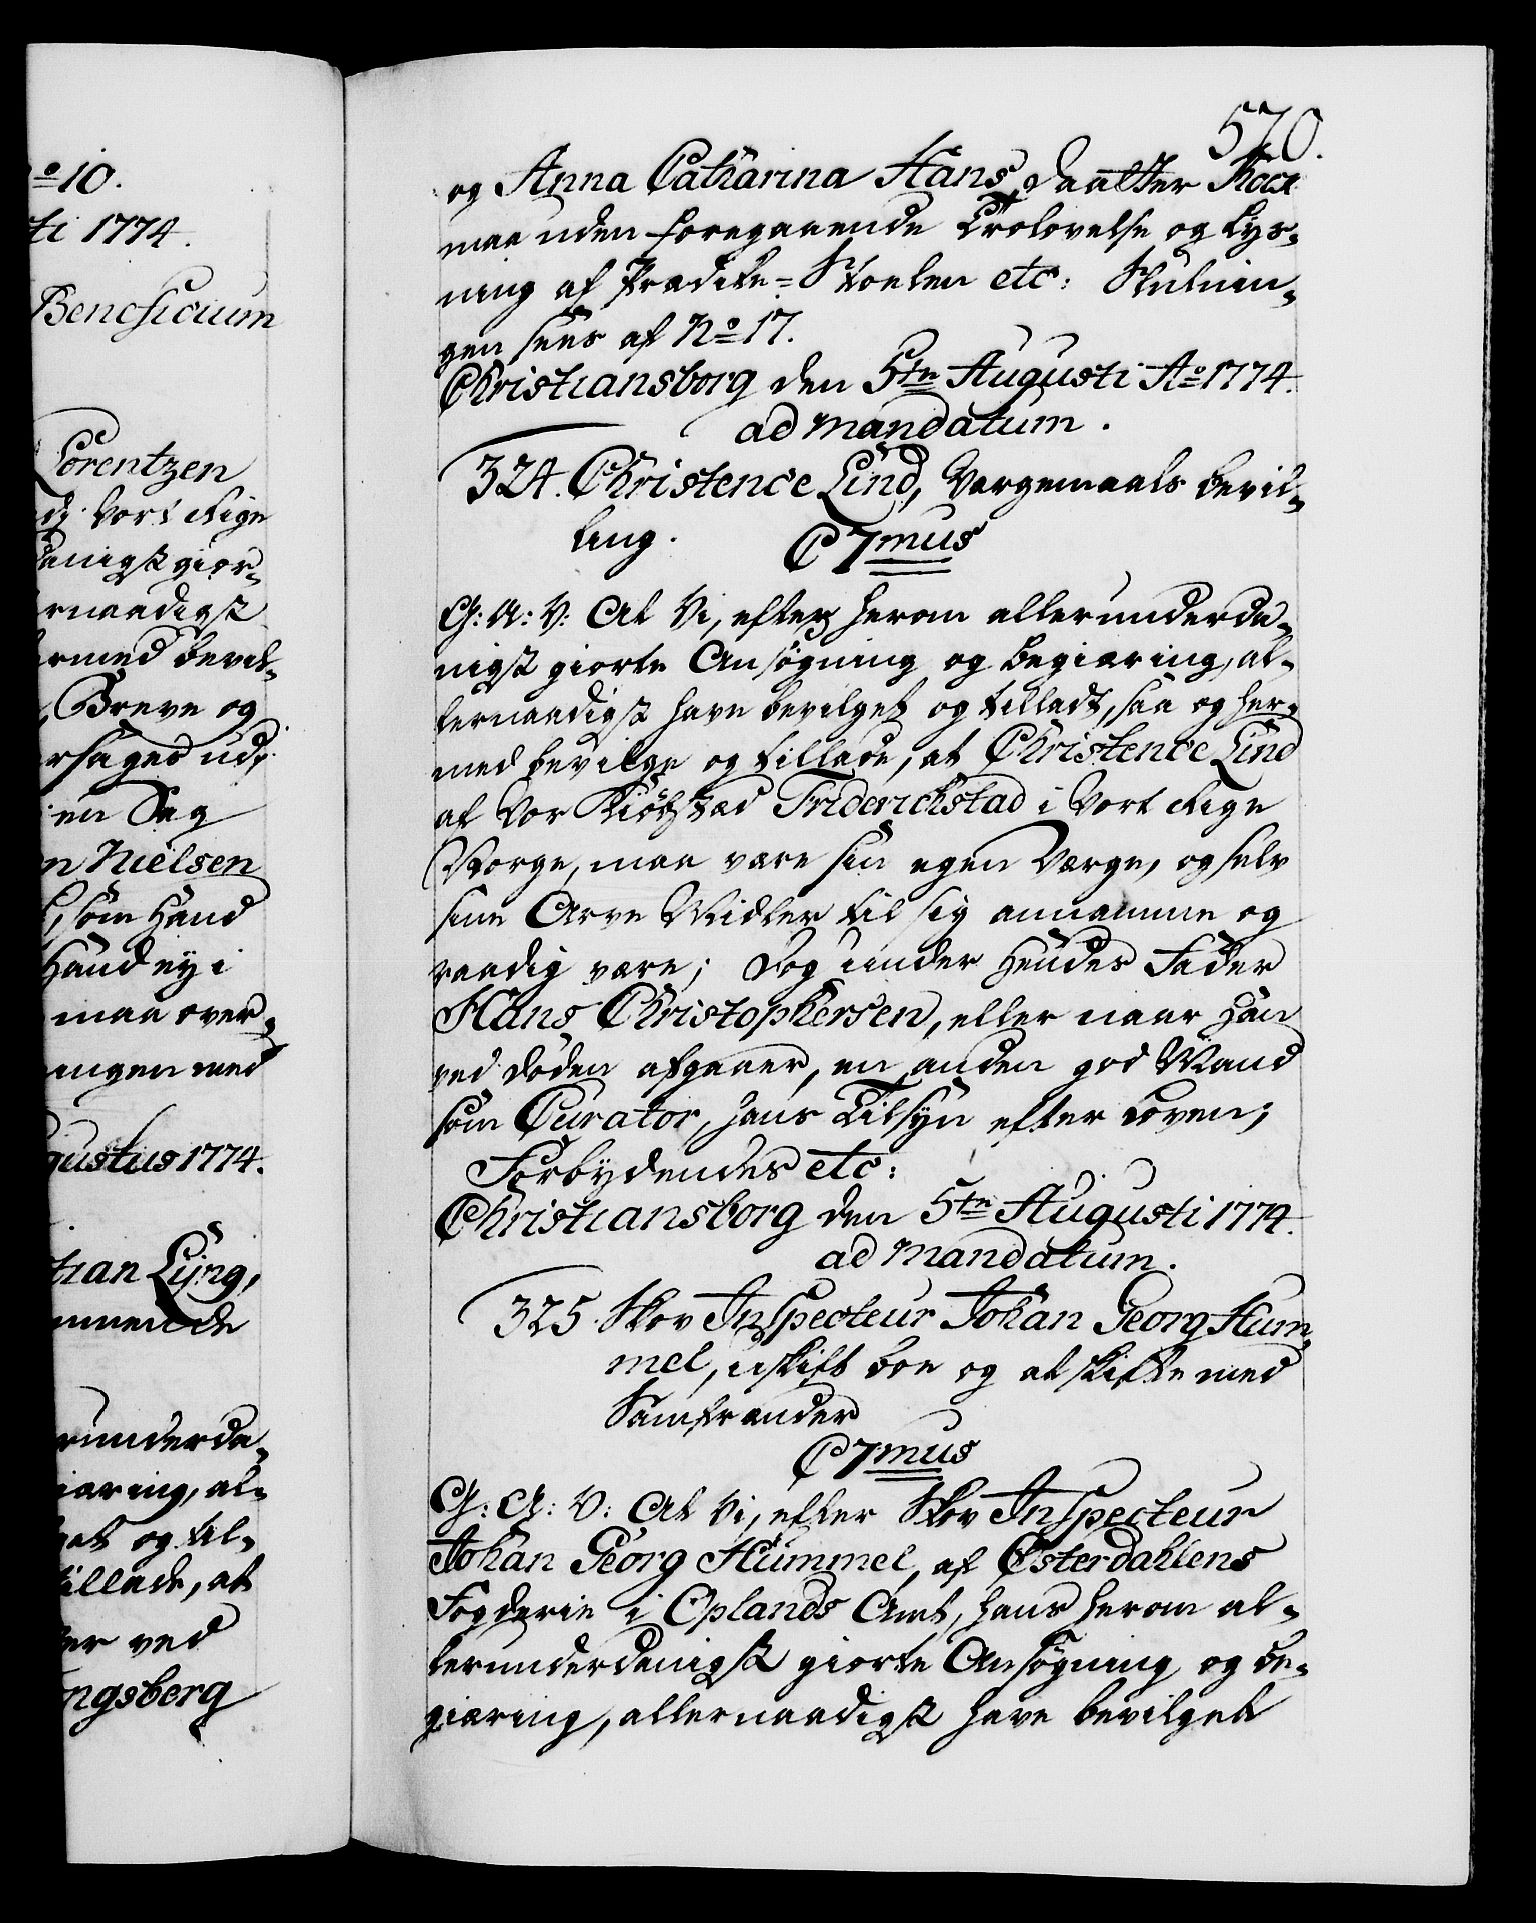 No 10.
ti 1774.
Beneficium
Lorentzen
dj Vort Rige
danigst giør-
ernaadigst
ermed bevil-
, Breve og
ersages ud,
en Sag
n Nielsen
som Hand
Hand ey i
maa over-
ingen med
gustus 1774.
tian Lÿng,
mmende
runderda-
iæring, al-
get og til-
tillade, at
er ved
ngsberg
570.
og Anna Catharina Hans Daatter
maa uden foregaaende Trolovelse og Lys-
ning af Prædike-Stoelen etc: Slutnin-
gen sees af No 17.
Christiansborg den 5te Augusti Ao 1774.
ad mandatum.
324. Christence Lind, Værgemaals bevil-
ling. C 7mus
G: A: V: At Vi, efter herom allerunderda-
nigst giorte Ansøgning og begiæring, al-
lernaadigst have bevilget og tilladt, saa og her-
med bevilge og tillade, at Christence Lind
af Vor Kiøbstæd Friderichstad i Vort Rige
Norge, maa være sin egen Værge, og selv
sine Arve Midler til sig annamme og
raadig være; Dog under Hendes Fader
Hans Christophersen, eller naar Han
ved Døden afgaaer, en anden god Mand
som Curator, hans Tilsÿn efter Loven;
Forbydendes etc:
Christiansborg den 5te Augusti 1774.
ad mandatum.
325. Skov Inspecteur Johan Georg Hum-
mel, uskift boe og at skifte med
Samfrænder
C 7mus
G: A: V: At Vi, efter Skov Inspecteur
Johan Georg Hummel, af Østerdahlens
Fogderie i Oplands Amt, hans herom al-
lerunderdanigst giorte Ansøgning og be-
giæring, allernaadigst have bevilget